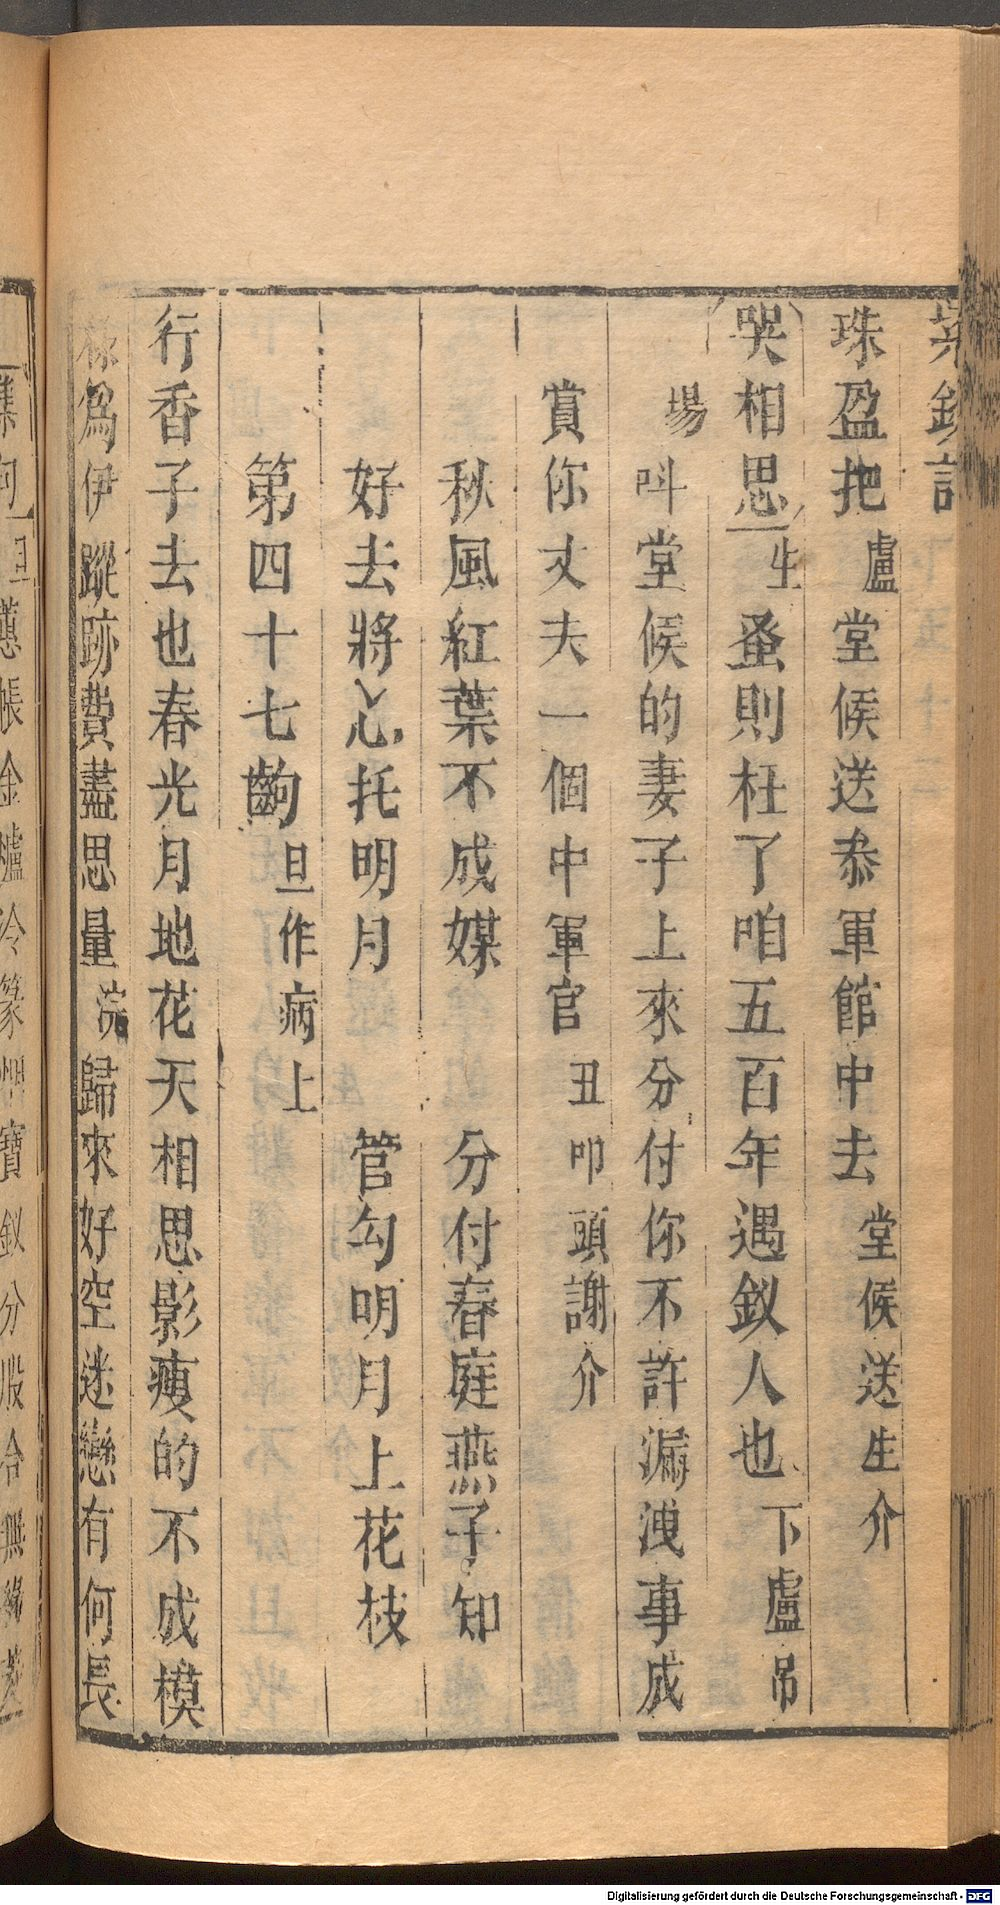 紫釵記
珠盈把盧堂候送叅軍館中去堂候送生介
哭相思生蚤則枉了咱五百年遇釵人也下盧吊
場呌堂候的妻子上來分付你不許漏洩事成
賞你丈夫一個中軍官丑叩頭謝介
秋風紅葉不成媒 分付春庭燕子知
好去將心托明月 管勾明月上花枝
第四十七齣旦作病上
行香子去也春光月地花天相思影瘦的不成模
樣爲伊蹤跡費盡思量浣歸來好空迷戀有何長
集句旦蕙帳金爐冷篆烟寶釵分股合無緣
Digitalisierung gefördert durch die Deutsche Forschungsgemeinschaft - DFG